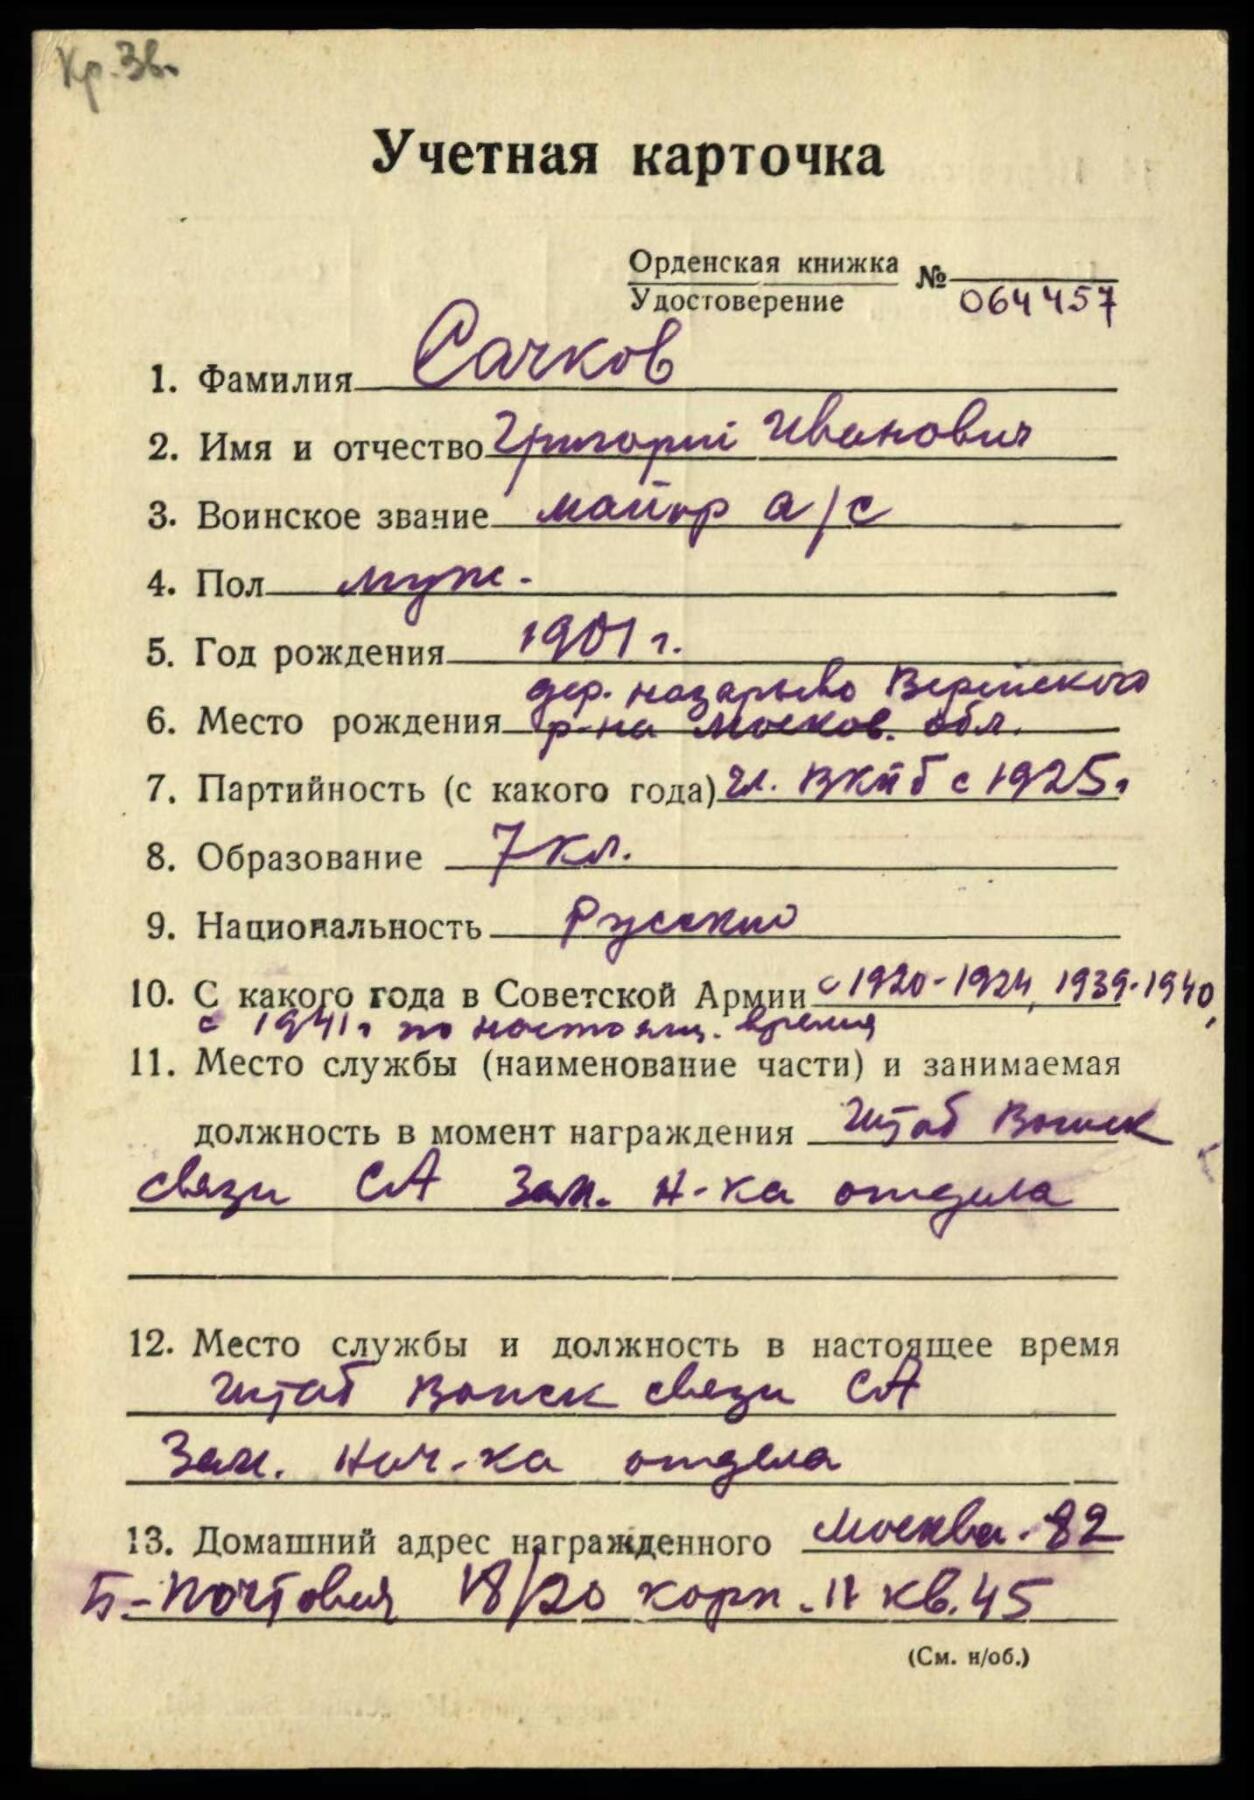 Кр. Зв.
Учетная карточка
Орденская книжка
Удостоверение № 064457
1. Фамилия Сачков
2. Имя и отчество Григорий Иванович
3. Воинское звание майор а/с
4. Пол муж.
5. Год рождения 1901 г.
дер. назарьево Верейского
6. Место рождения р-на москов. обл.
7. Партийность (с какого года) чл. ВКПб с 1925 г
8. Образование 7 кл.
9. Национальность Русский
10. С какого года в Советской Армии с 1920-1924, 1939-1940,
с 1941 г по настоящ. время
11. Место службы (наименование части) и занимаемая
должность в момент награждения Штаб Войск
связи СА Зам. н-ка отдела
12. Место службы и должность в настоящее время
Штаб Войск связи СА
Зам. нач-ка отдела
13. Домашний адрес награжденного Москва-82
Б-Почтовая 18/20 корп. 11 кв. 45
(См. н/об.)